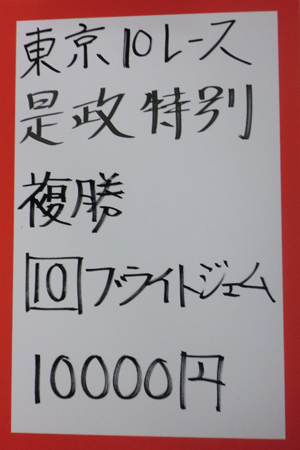 東京10レース
是政特別
複勝
10ブライトジェム
10000円